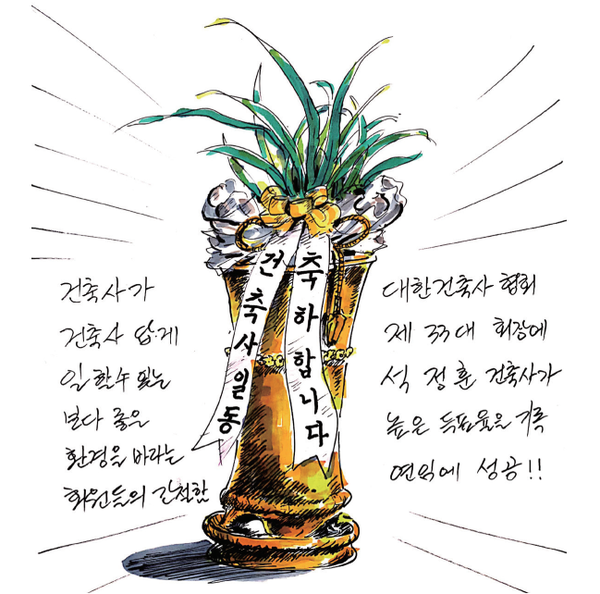 건축사가
건축사 답게
일 할수 있는
보다 좋은
환경을 바라는
회원들의 간절함
건축사일동
축하합니다
대한건축사 협회
제 33대 회장에
석 정훈 건축사가
높은 득표율을 기록
연임에 성공!!